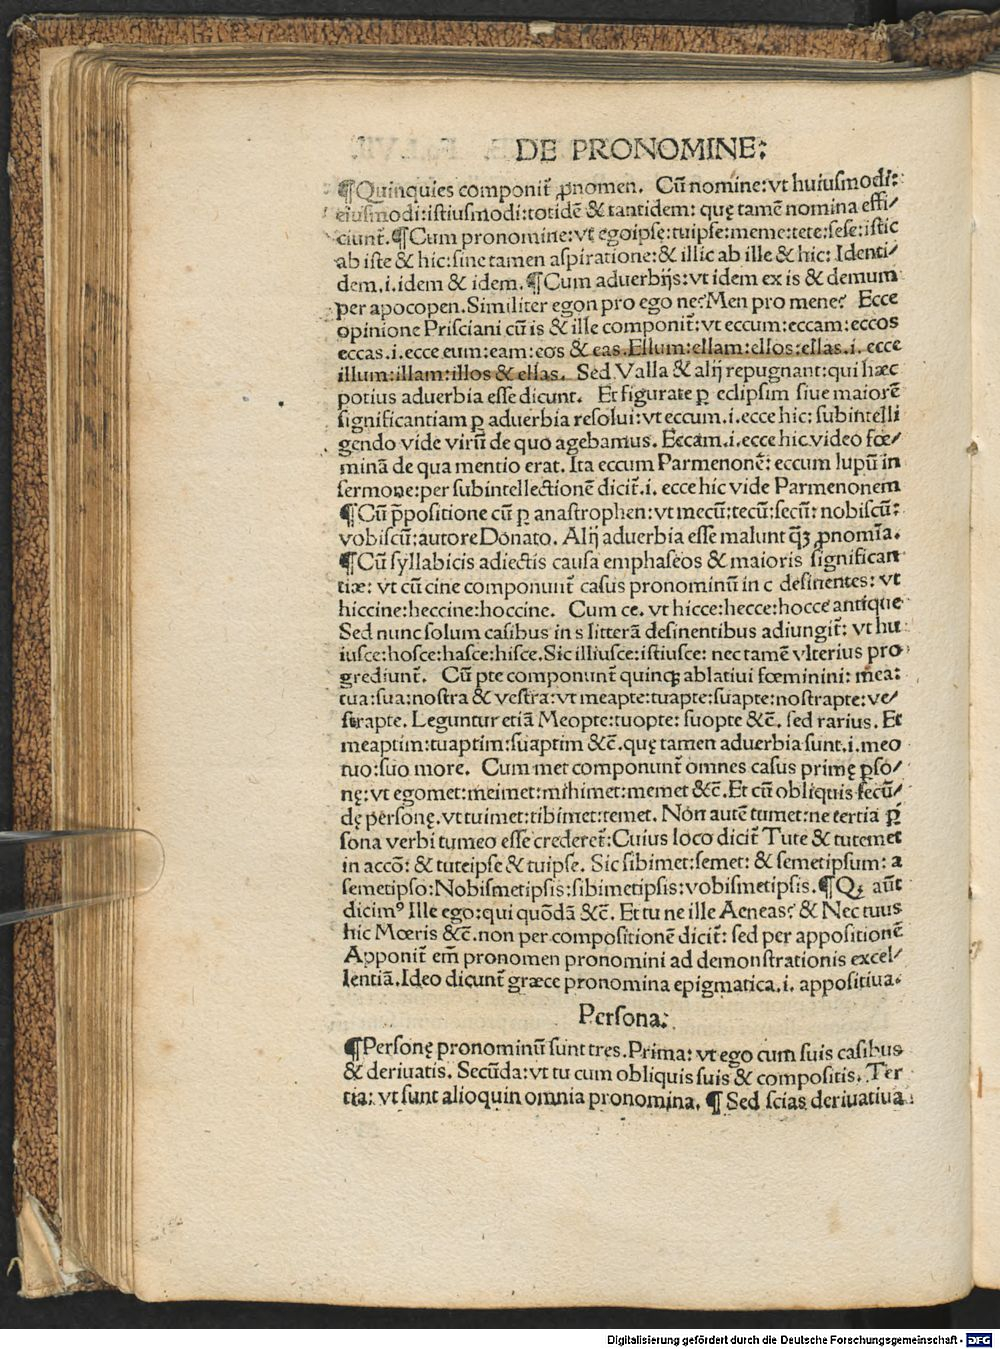 DE PRONOMINE:
¶Quinquies componit̃ ꝓnomen. Cũ nomine: vt huiuſmodi:
eiuſmodi: iſtiuſmodi: totidẽ & tantidem: quę tamẽ nomina effi/
ciunt̃. ¶Cum pronomine: vt egoipſe: tuipſe: meme: tete: ſeſe: iſtic
ab iſte & hic: ſine tamen aſpiratione: & illic ab ille & hic: Identi/
dem .i. idem & idem. ¶Cum aduerbijs: vt idem ex is & demum
per apocopen. Similiter egon pro ego ne? Men pro mene? Ecce
opinione Priſciani cũ is & ille componit̃: vt eccum: eccam: eccos
eccas .i. ecce eum: eam: eos & eas. Ellum: ellam: ellos: ellas .i. ecce
illum: illam: illos & ellas. Sed Valla & alij repugnant: qui hæc
potius aduerbia eſſe dicunt. Et figurate ꝑ eclipſim ſiue maiorẽ
ſignificantiam ꝑ aduerbia reſolui: vt eccum .i. ecce hic: ſubintelli
gendo vide virũ de quo agebamus. Eccam .i. ecce hic video fœ/
minã de qua mentio erat. Ita eccum Parmenonẽ: eccum lupũ in
ſermone: per ſubintellectionẽ dicit̃ .i. ecce hic vide Parmenonem
¶Cũ p̃poſitione cũ ꝑ anaſtrophen: vt mecũ: tecũ: ſecũ: nobiſcũ:
vobiſcũ: autore Donato. Alij aduerbia eſſe malunt q̃ꝫ ꝓnomĩa.
¶Cũ ſyllabicis adiectis cauſa emphaſeos & maioris ſignifican
tiæ: vt cũ cine componunt̃ caſus pronominũ in c deſinentes: vt
hiccine: heccine: hoccine. Cum ce. vt hicce: hecce: hocce antique
Sed nunc ſolum caſibus in s litterã deſinentibus adiungit̃: vt hu
iuſce: hoſce: haſce: hiſce. Sic illiuſce: iſtiuſce: nec tamẽ vlterius pro
grediunt̃. Cũ pte componunt̃ quinqꝫ ablatiui fœminini: mea:
tua: ſua: noſtra & veſtra: vt meapte: tuapte: ſuapte: noſtrapte: ve/
ſtrapte. Leguntur etiã Meopte: tuopte: ſuopte &c̃. ſed rarius. Et
meaptim: tuaptim: ſuaptim &c̃. quę tamen aduerbia ſunt .i. meo
tuo: ſuo more. Cum met componunt̃ omnes caſus primę ꝑſo/
nę: vt egomet: meimet: mihimet: memet &c̃. Et cũ obliquis ſecũ/
dę perſonę. vt tuimet: tibimet: temet. Non autẽ tumet: ne tertia ꝑ
ſona verbi tumeo eſſe crederet̃: Cuius loco dicit̃ Tute & tutemet
in accõ: & tuteipſe & tuipſe. Sic ſibimet: ſemet: & ſemetipſum: a
ſemetipſo: Nobiſmetipſis: ſibimetipſis: vobiſmetipſis. ¶Qꝫ aũt
dicimꝰ Ille ego: qui quõdã &c̃. Et tu ne ille Aeneas? & Nec tuus
hic Mœris &c̃. non per compoſitionẽ dicit̃: ſed per appoſitionẽ
Apponit̃ em̃ pronomen pronomini ad demonſtrationis excel/
lentiã. Ideo dicunt̃ græce pronomina epigmatica .i. appoſitiua.
Perſona:
¶Perſonę pronominũ ſunt tres. Prima: vt ego cum ſuis caſibus
& deriuatis. Secũda: vt tu cum obliquis ſuis & compoſitis. Ter
tia: vt ſunt alioquin omnia pronomina. ¶Sed ſcias deriuatiua
Digitalisierung gefördert durch die Deutsche Forschungsgemeinschaft - DFG